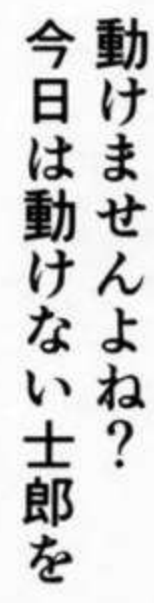 動けませんよね？
今日は動けない士郎を